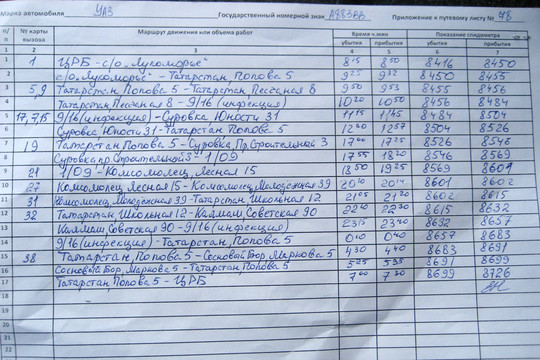 Марка автомобиля УАЗ Государственный номерной знак А883ВВ Приложение к путевому листу № 48
№ п/п № карты вызова Маршрут движения или объема работ Время ч.мин Показание спидометра
убытия прибытия убытия прибытия
1 2 3 4 5 6 7
1 1 ЦРБ - с/о „Лукоморье" 8 15 8 50 8416 8450
2 с/о „Лукоморье" - Татарстан, Попова 5 9 25 9 32 8450 8455
3 5,9 Татарстан, Попова 5 - Татарстан, Песчаная 8 9 50 9 53 8455 8456
4 Татарстан, Песчаная 8 - 9/16 (инфекция) 10 20 10 50 8456 8484
5 17,7,15 9/16 (инфекция) - Суровка Юности 31 11 15 11 45 8484 8504
6 Суровка Юности 31 - Татарстан Попова 5 12 30 12 57 8504 8526
7 19 Татарстан Попова 5 - Суровка, Пр. Строительной 3 17 00 17 25 8526 8546
8 Суровка пр. Строительной 3 - 1/09 17 55 18 20 8546 8569
9 21 1/09 - Комсомолец, Лесная 15 18 50 19 25 8569 8601
10 27 Комсомолец Лесная 15 - Комсомолец, Молодёжная 39 20 10 20 14 8601 8602
11 31 Комсомолец, Молодёжная 39 - Татарстан, Школьная 12 21 05 21 30 8602 8615
12 32 Татарстан, Школьная 12 - Калмаш, Советская 90 22 10 22 30 8615 8632
13 Калмаш, Советская 90 - 9/16 (инфекция) 23 15 23 40 8632 8657
14 9/16 (инфекция) - Татарстан, Попова 5 0 10 0 40 8657 8683
15 38 Татарстан, Попова 5 - Сосновый Бор, Маркова 5 4 30 4 40 8683 8691
16 Сосновый Бор, Маркова 5 - Татарстан, Попова 5 5 25 5 35 8691 8699
17 Татарстан, Попова 5 - ЦРБ 7 00 7 30 8699 8726
18
19
20
21
22